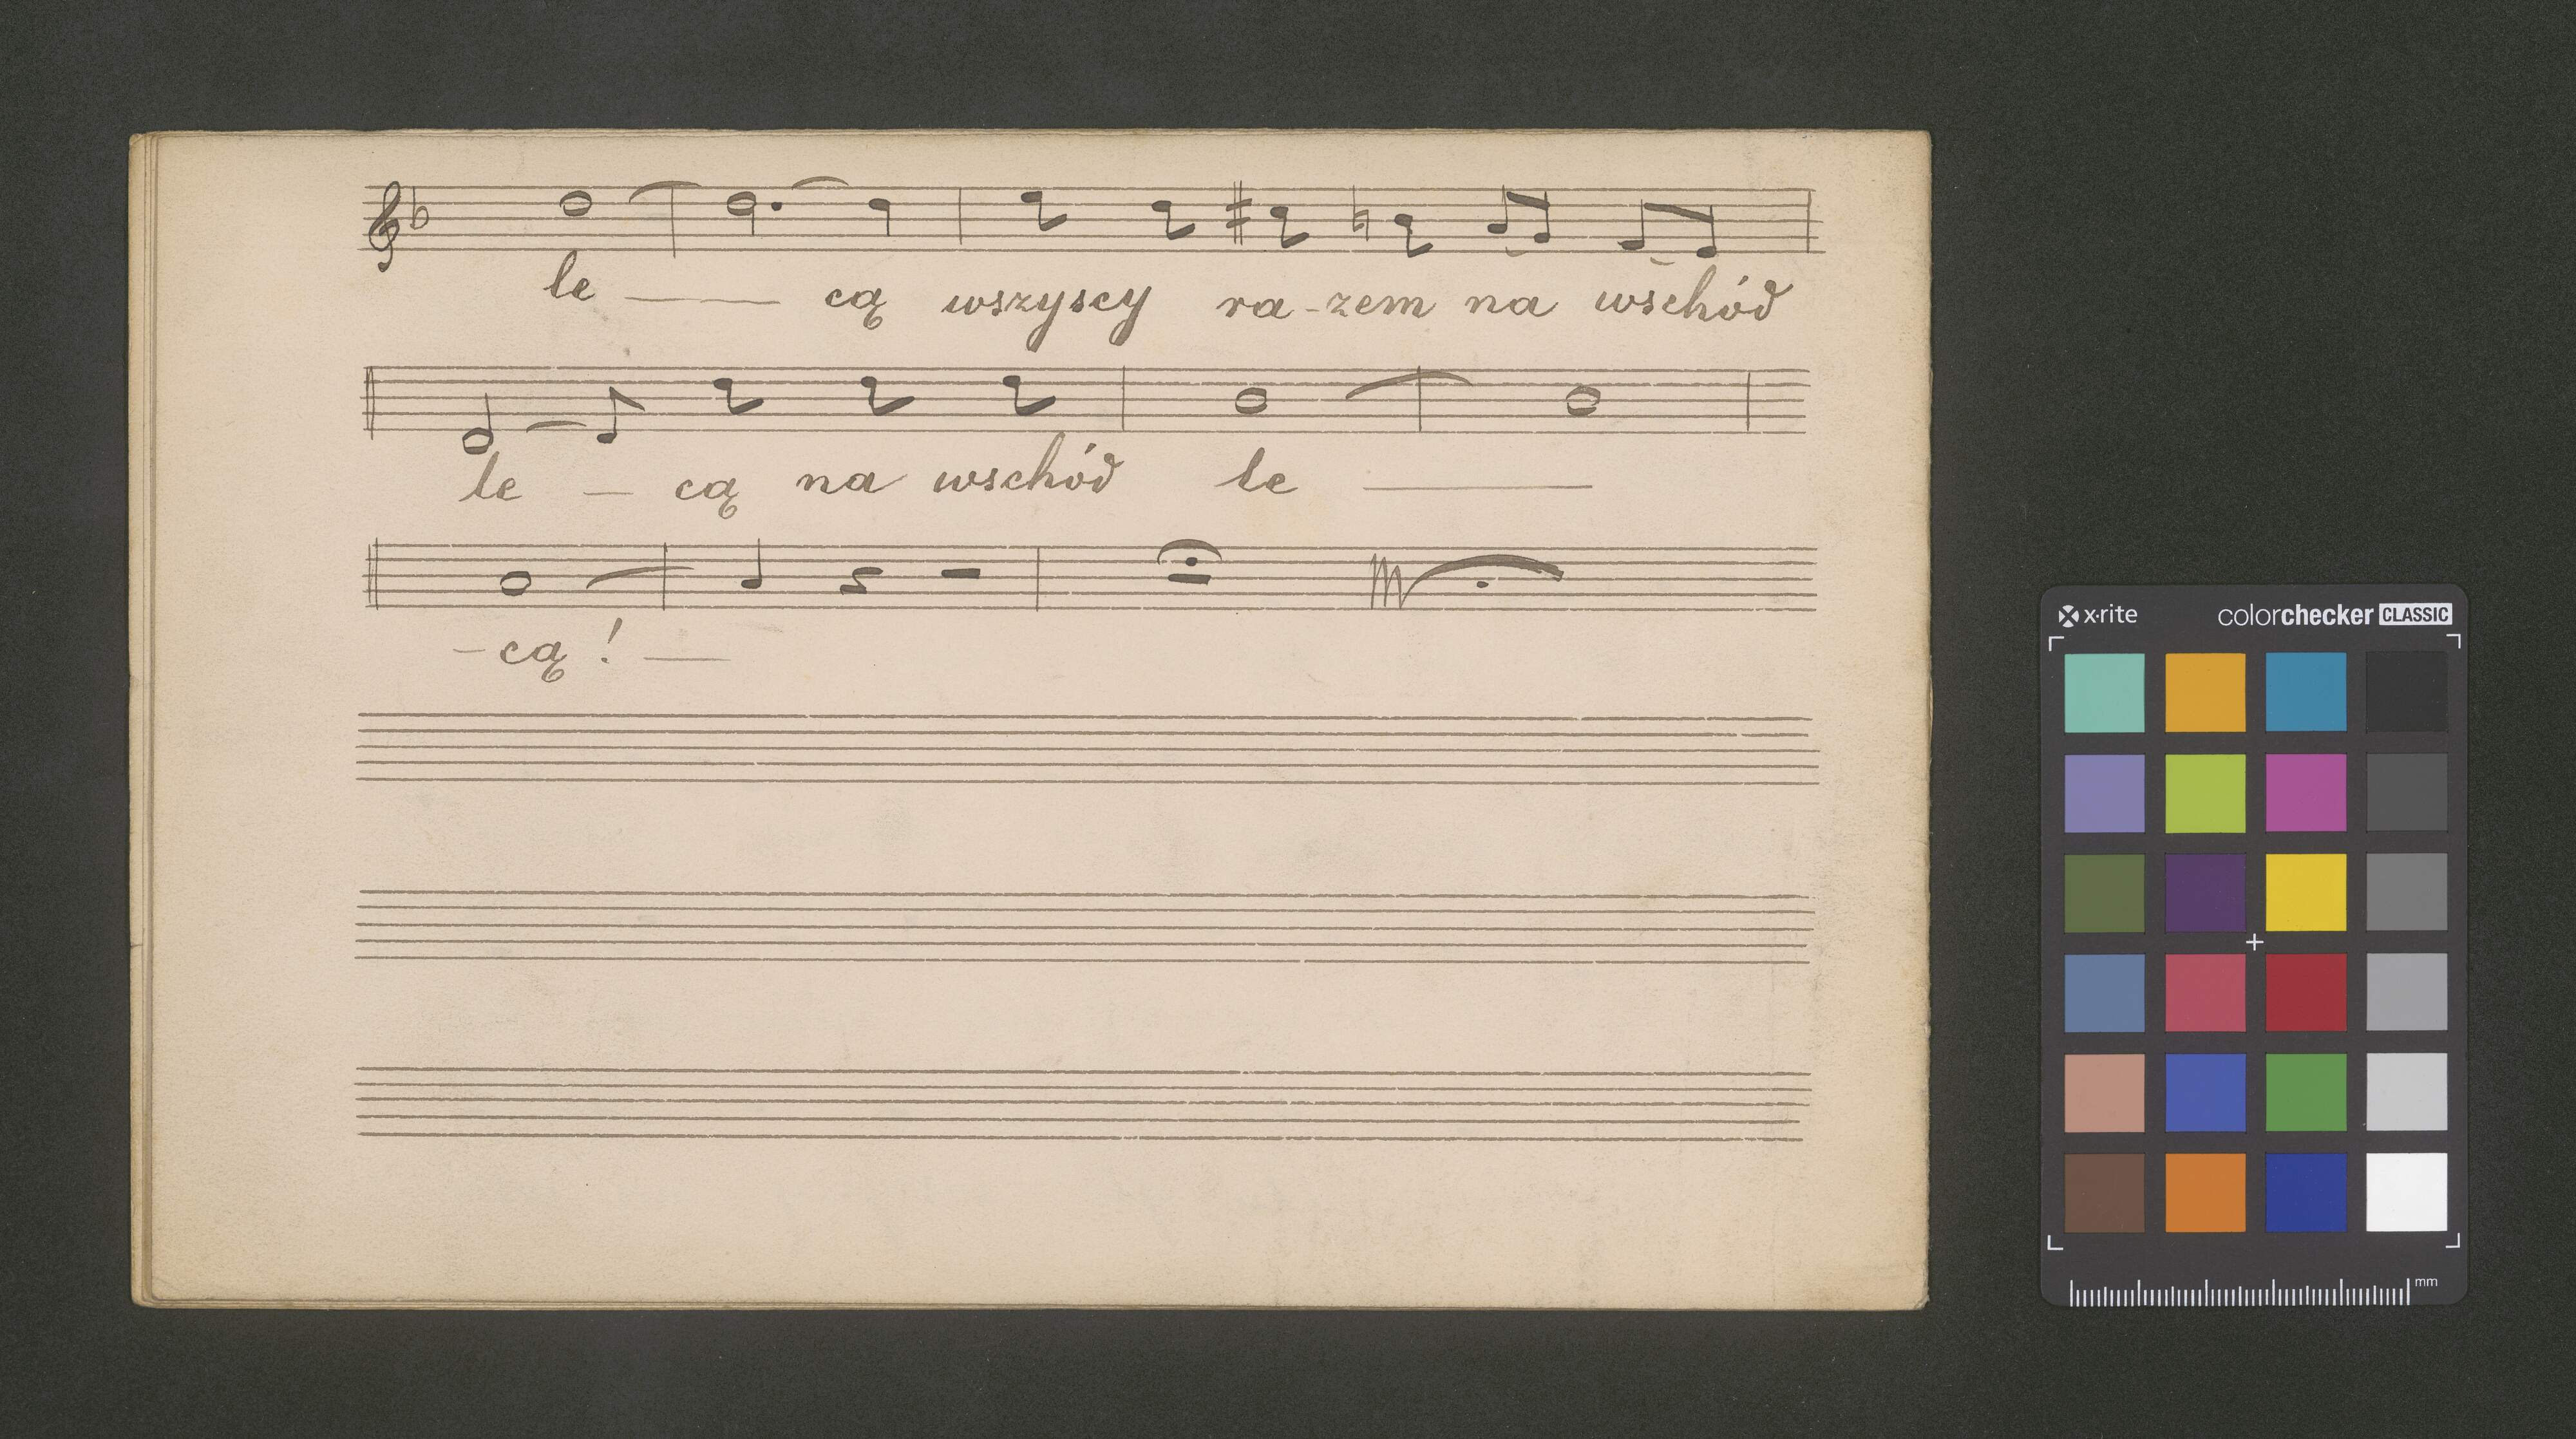 le — — cą wszyscy ra-zem na wschód
le — cą na wschód le —
- cą! —
x·rite colorchecker CLASSIC
mm